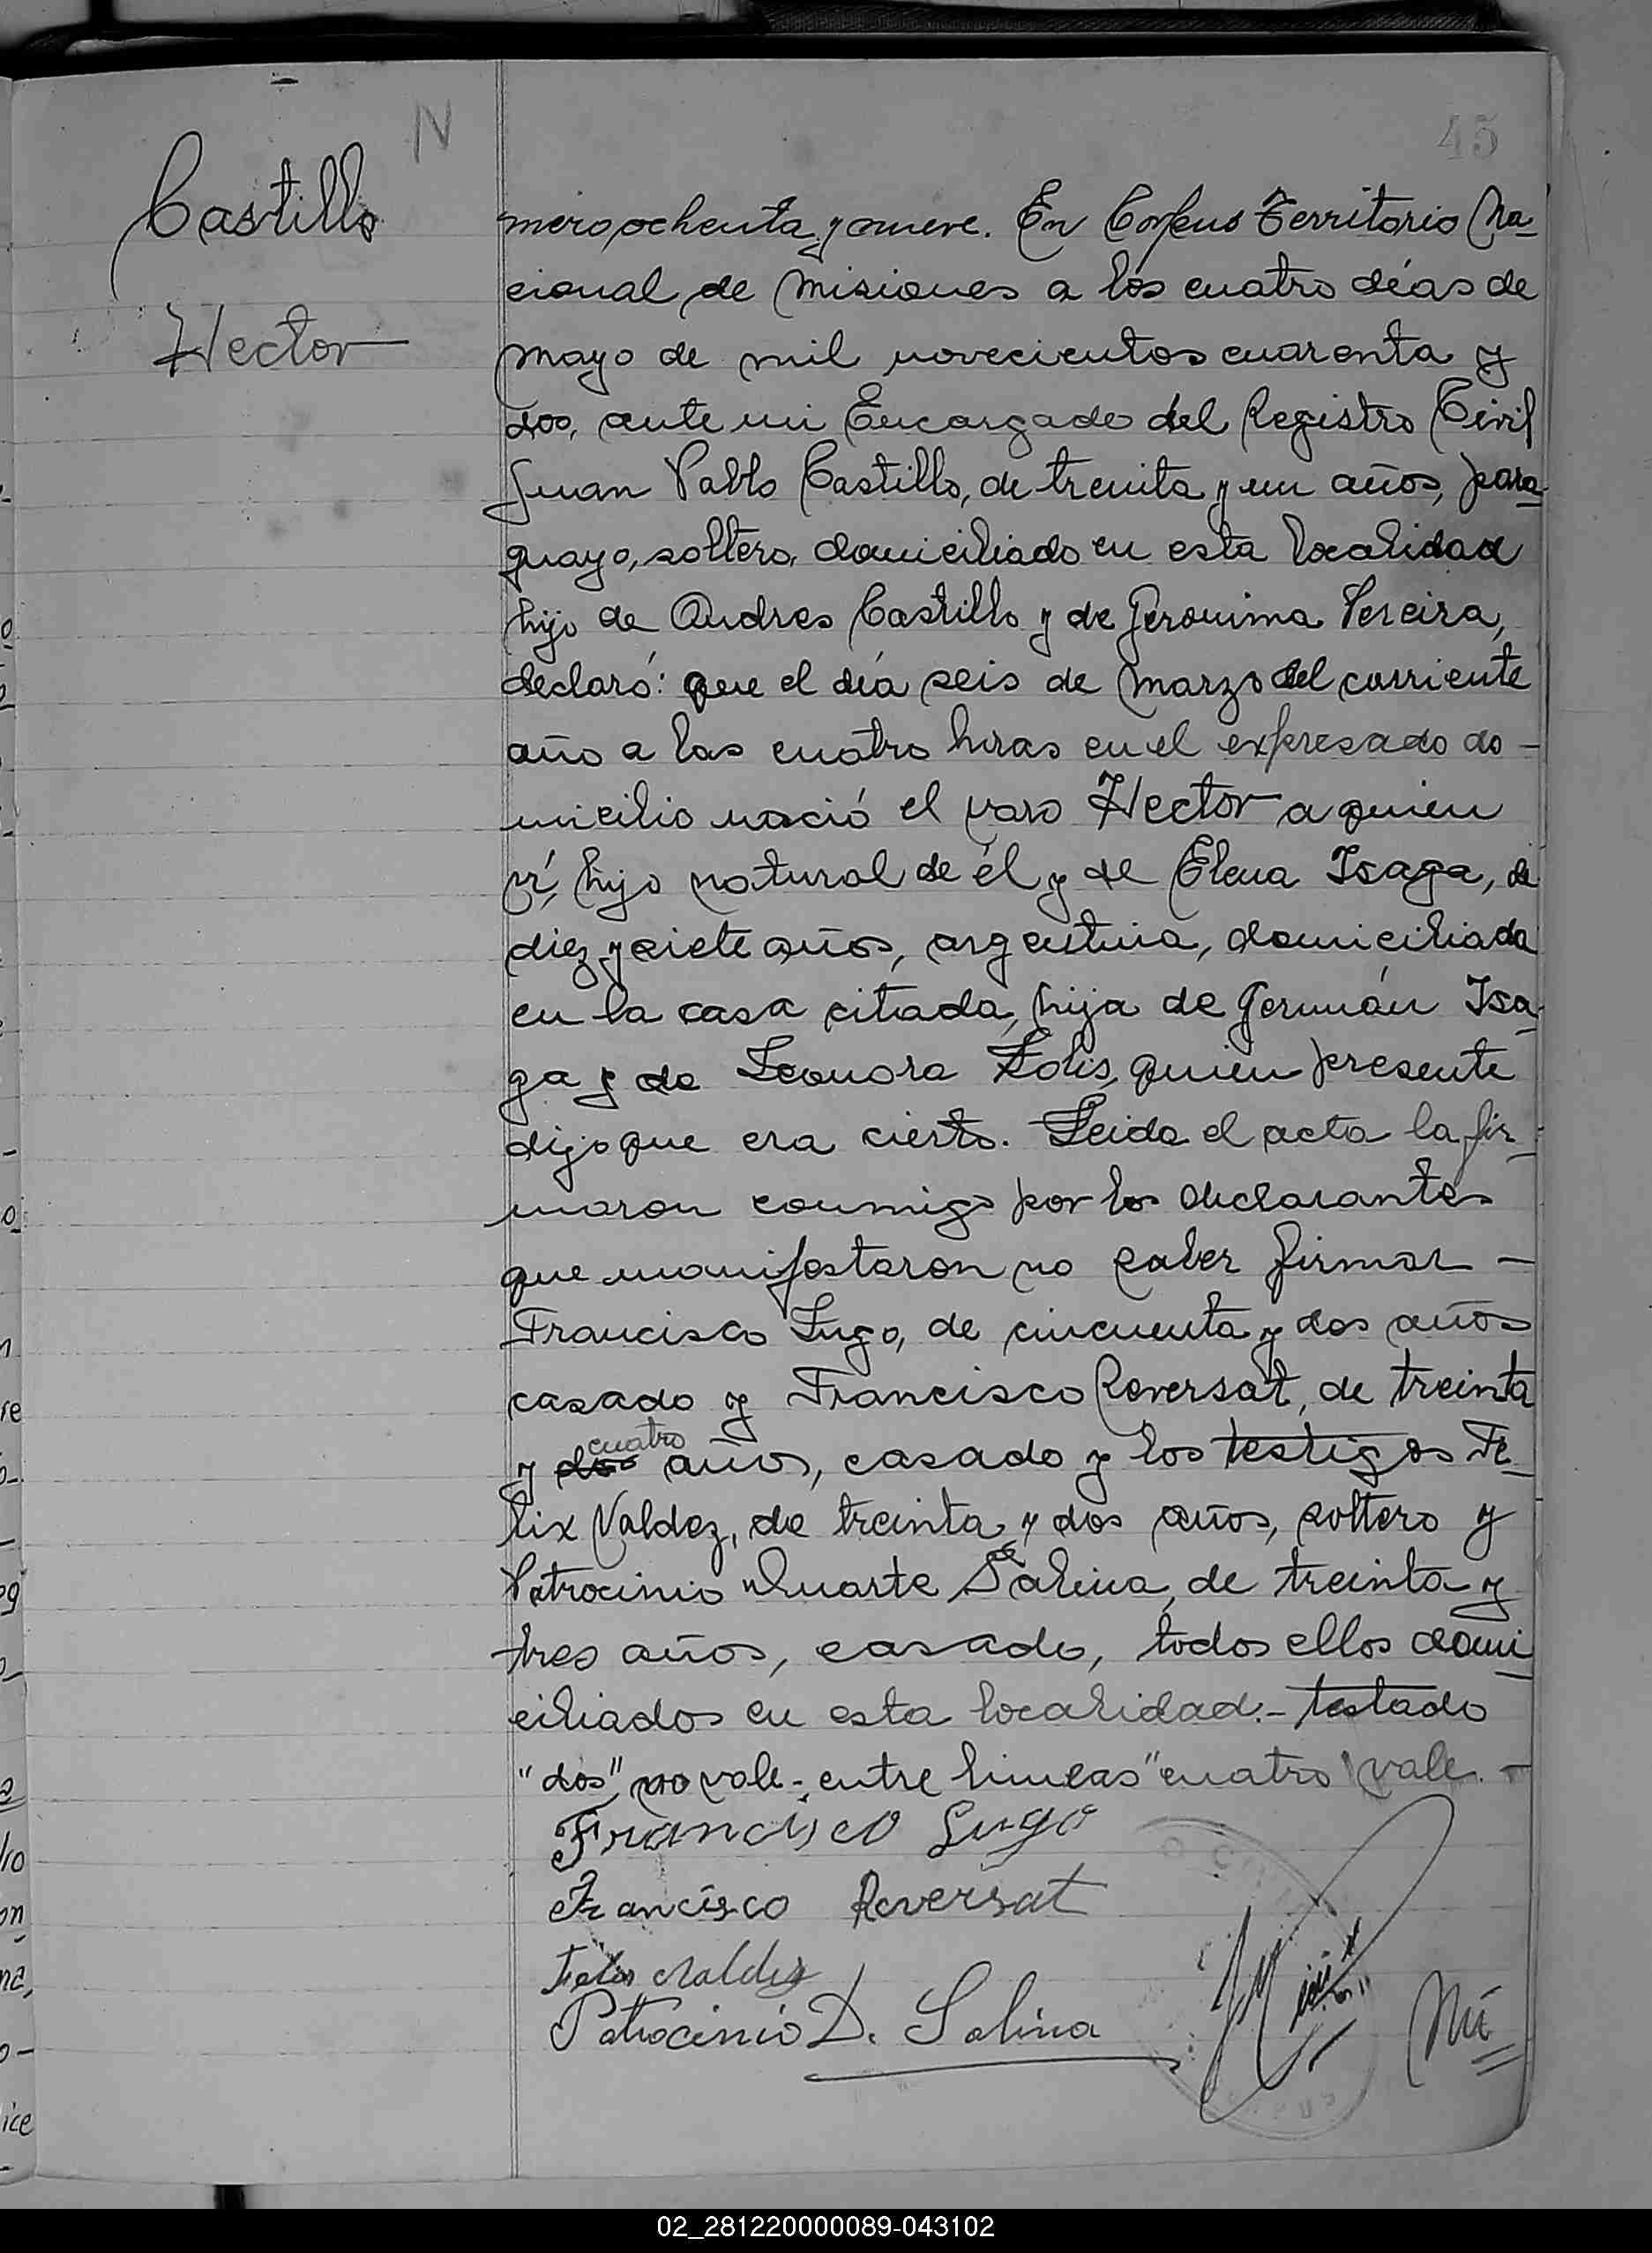 N
45
Castillo
Hector
mero ochenta y nueve. En Corpus Territorio Na-
cional de Misiones a los cuatro días de
mayo de mil novecientos cuarenta y
dos, ante mi Encargado del Registro Civil
Juan Pablo Castillo, de treinta y un años, para-
guayo, soltero, domiciliado en esta localidad
hijo de Andres Castillo y de Geronima Pereira,
declaró: que el día seis de marzo del corriente
año a las cuatro horas en el expresado do-
micilio nació el varo Hector a quien
ví, hijo natural de él y de Elena Isaga, de
diez y siete años, argentina, domiciliada
en la casa citada, hija de Germán Isa-
ga y de Leonora Solis, quien presente
dijo que era cierto. Leida el acta la fir-
maron conmigo por los declarantes
que manifestaron no saber firmar -
Francisco Lugo, de cincuenta y dos años
casado y Francisco Reversat, de treinta
cuatro
y dos años, casado y los testigos Fe-
lix Valdez, de treinta y dos años, soltero y
Patrocinio Duarte Salina, de treinta y
tres años, casado, todos ellos domi-
ciliados en esta localidad.- testado
"dos" no vale - entre lineas "cuatro" vale. -
Francisco Lugo
Francisco Reversat
Felix Valdez
Patrocinio D. Salina
Nú
02_281220000089-043102